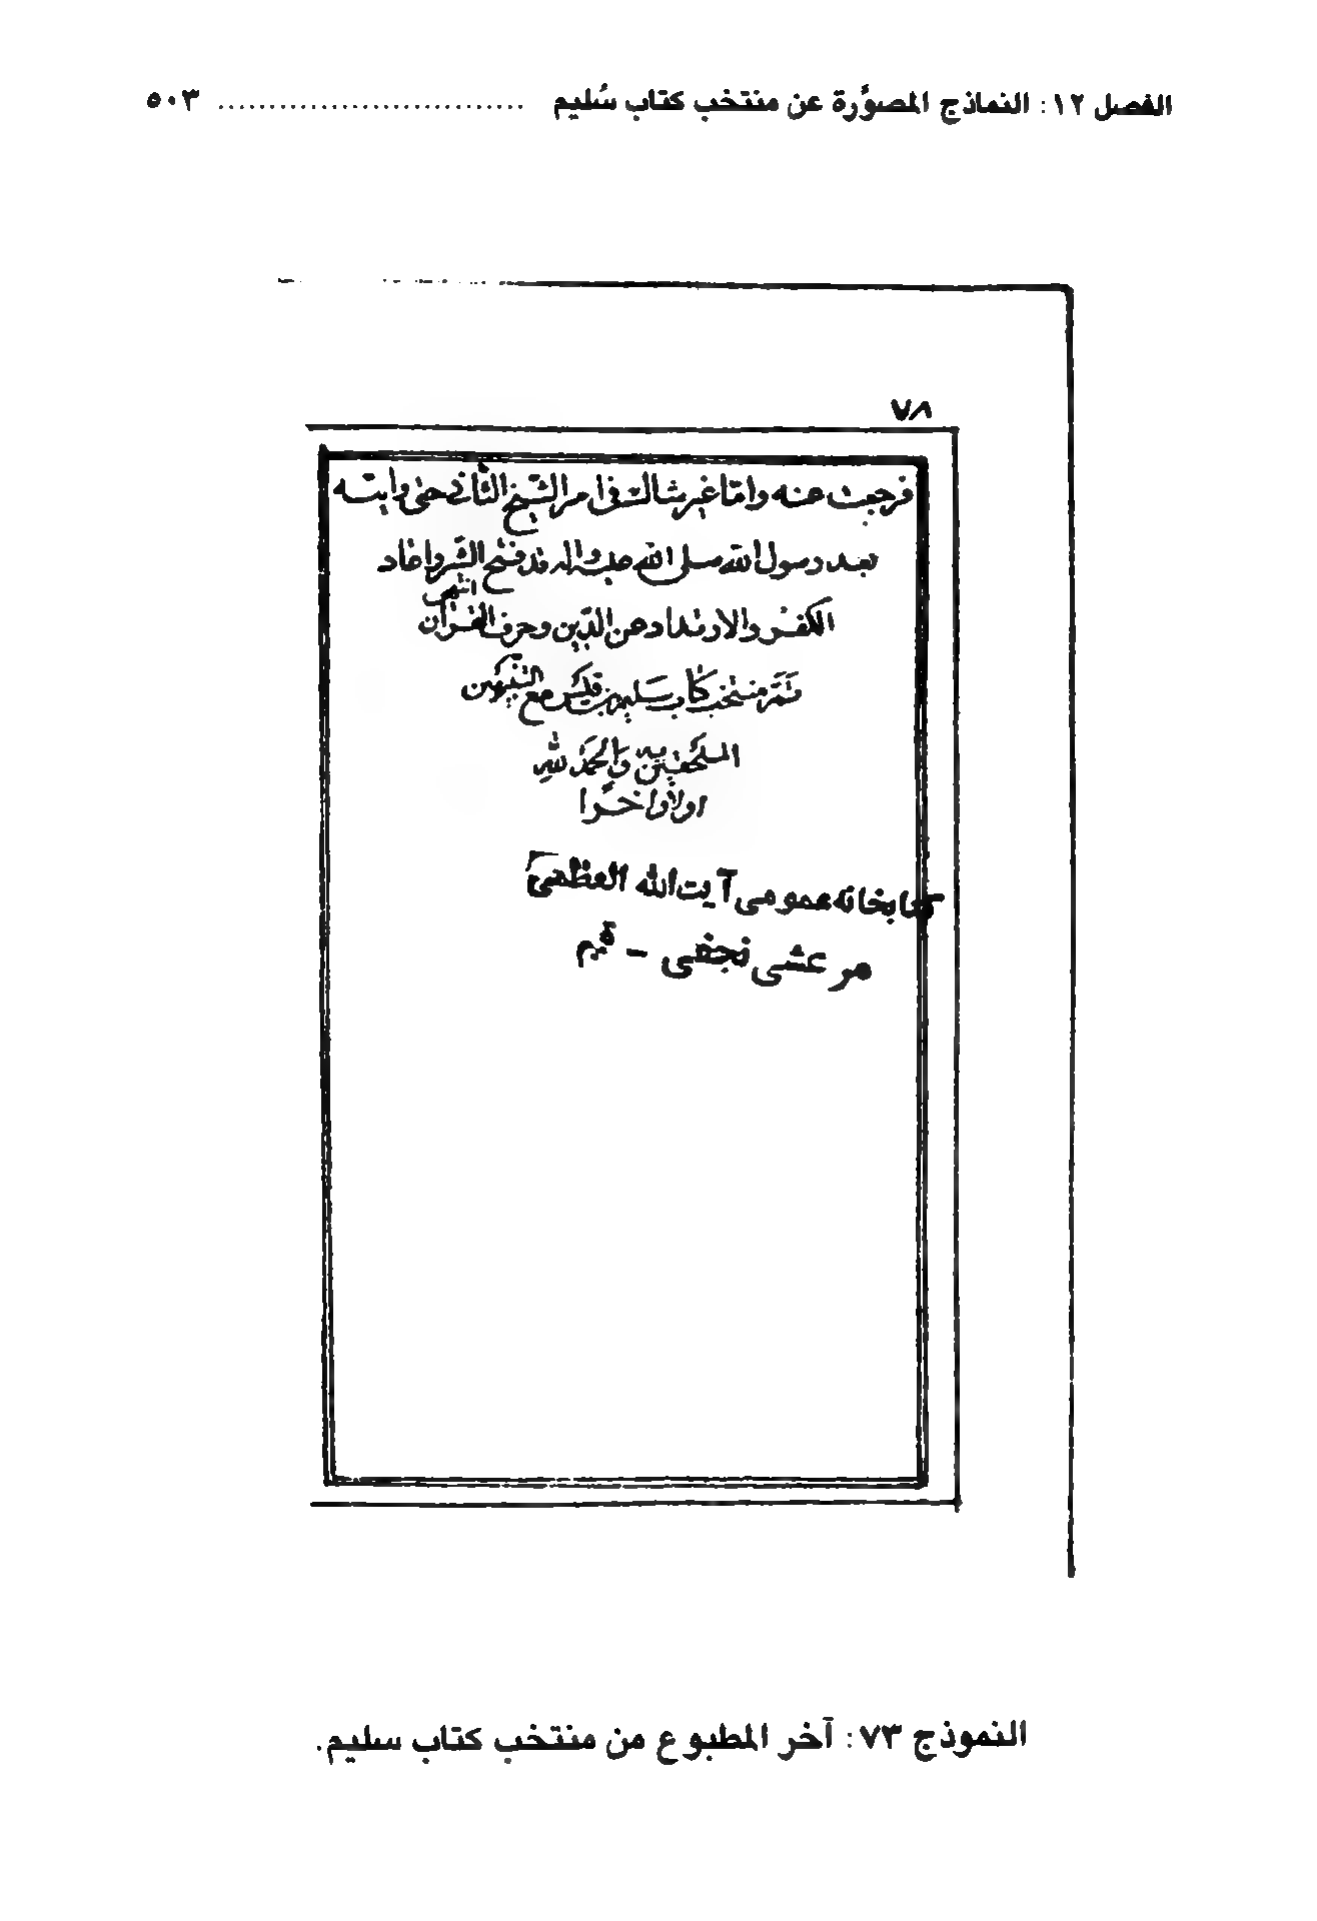 الفصل ١٢: النماذج المصوَّرة عن منتخب كتاب سُليم .............................. ٥٠٣
٧٨
فرجعت عنه واما غير شاك فى امر الشيخ الثانى حتى رايته
بعد رسول الله صلى الله عليه واله قد فتح الشر واعاد
الكفر والارتداد عن الدين وحرف القرآن انتهى
تمّ منتخب كتاب سليم بن قيس مع
الملحقين به والحمد لله
اولا واخرا
كتابخانه عمومى آيت الله العظمى
مرعشى نجفى - قم
النموذج ٧٣: آخر المطبوع من منتخب كتاب سليم.